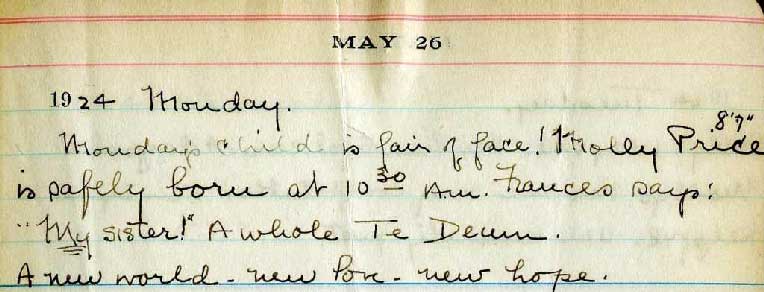 MAY 26
1924 Monday.
8'7"
Monday's child is fair of face! Molly Price
is safely born at 10 30 A.m. Frances says:
"My sister!" A whole Te Deum.
A new world - new love - new hope.